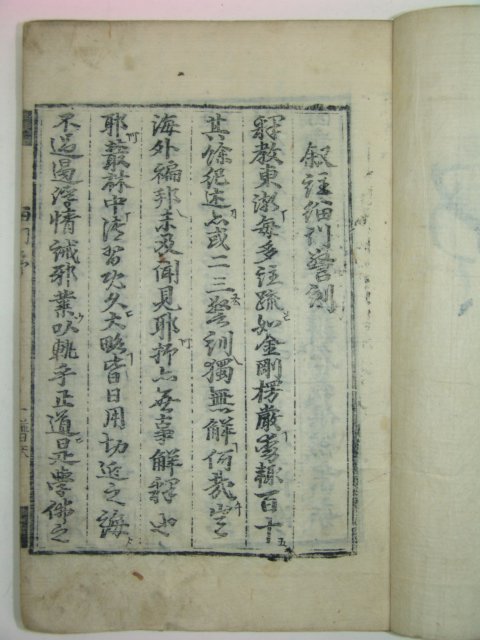 叙註緇門警訓
釋教東漸每多註疏如金剛楞嚴奚翅百十
其餘紀述亦或二三警訓獨無解何哉豈
海外褊邦未及聞見耶抑亦無事解釋也
耶叢林中講習已久大略皆日用切近之誨
不過遏浮情誡邪業以軌乎正道是學佛之